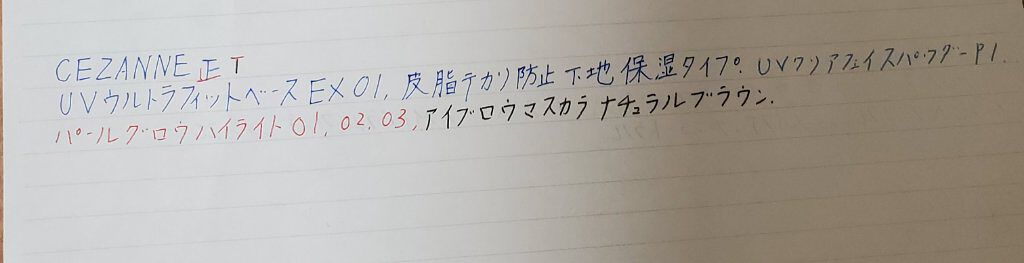 CEZANNE 正T
UVウルトラフィットベースEX01, 皮脂テカリ防止下地 保湿タイプ. UVクリアフェイスパウダーP1.
パールグロウハイライト01, 02, 03, アイブロウマスカラ ナチュラルブラウン.